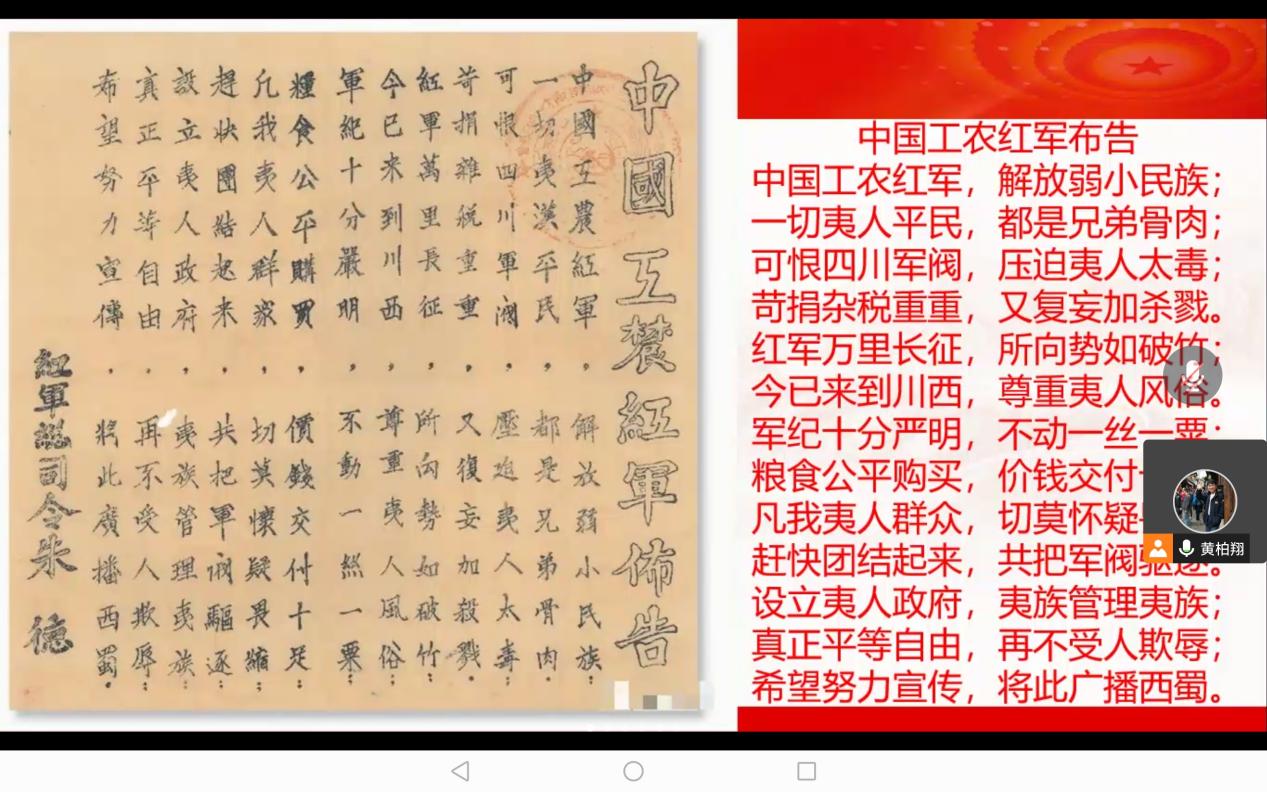 中國工農紅軍佈告
中國工農紅軍，解放弱小民族；
一切夷漢平民，都是兄弟骨肉；
可恨四川軍閥，壓迫夷人太毒；
苛捐雜稅重重，又復妄加殺戮。
紅軍萬里長征，所向勢如破竹；
今已来到川西，尊重夷人風俗；
軍紀十分嚴明，不動一絲一粟；
糧食公平購買，價錢交付十足；
凡我夷人群眾，切莫懷疑畏縮；
趕快團結起来，共把軍閥驅逐；
設立夷人政府，夷族管理夷族；
真正平等自由，再不受人欺辱；
希望努力宣傳，將此廣播西蜀。
紅軍總司令朱德
中国工农红军布告
中国工农红军，解放弱小民族；
一切夷人平民，都是兄弟骨肉；
可恨四川军阀，压迫夷人太毒；
苛捐杂税重重，又复妄加杀戮。
红军万里长征，所向势如破竹；
今已来到川西，尊重夷人风俗。
军纪十分严明，不动一丝一粟；
粮食公平购买，价钱交付
凡我夷人群众，切莫怀疑
赶快团结起来，共把军阀驱逐。
设立夷人政府，夷族管理夷族；
真正平等自由，再不受人欺辱；
希望努力宣传，将此广播西蜀。
黄柏翔